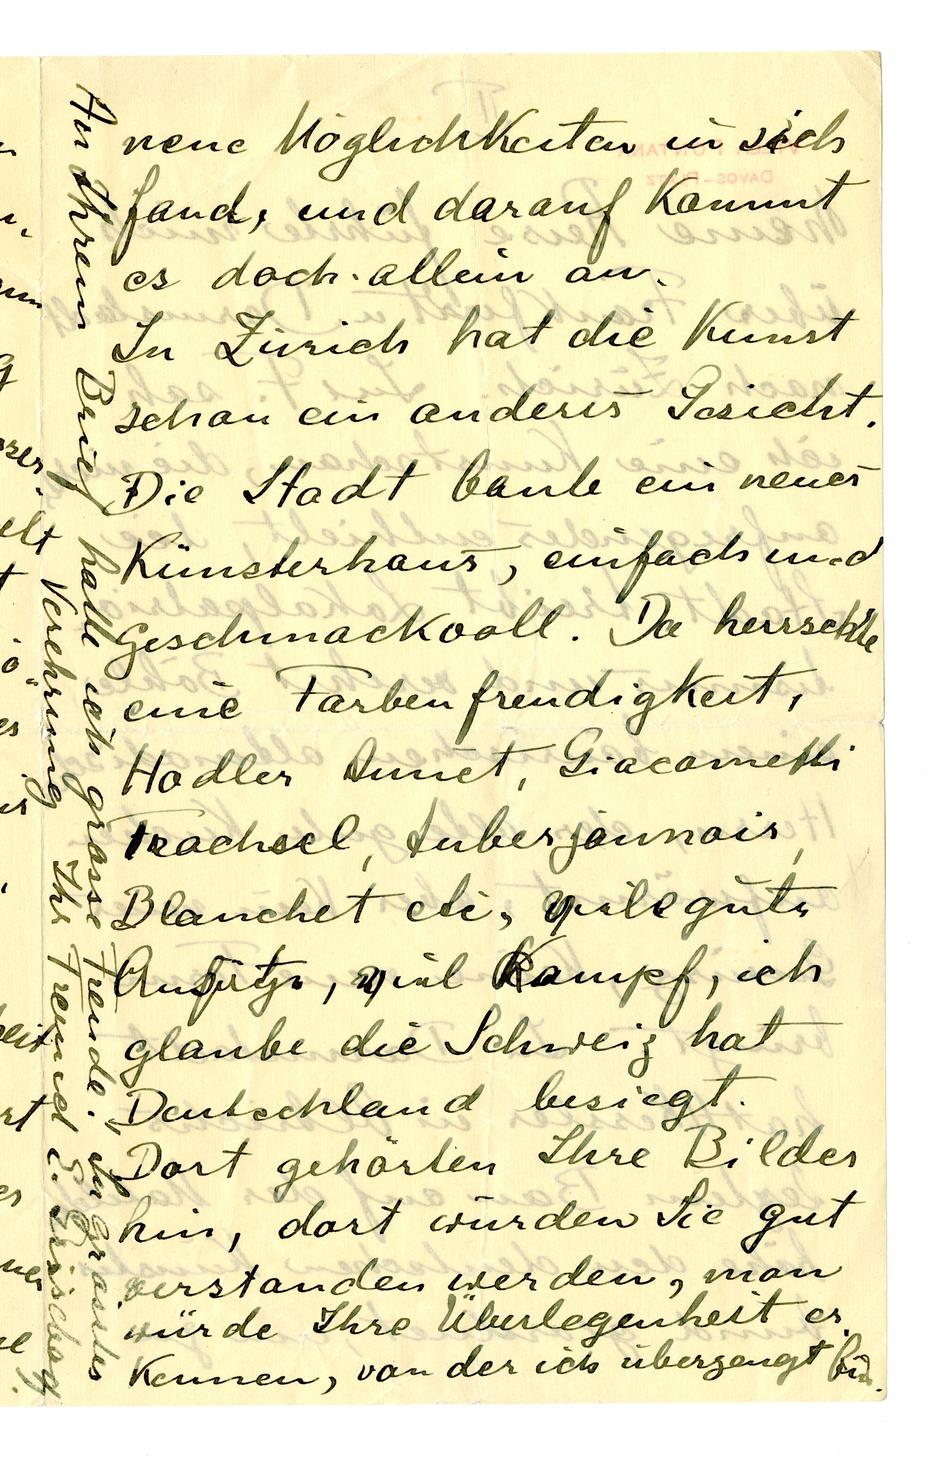 neue Möglichkeiten in sich
fand, und darauf kommt
es doch allein an.
In Zürich hat die Kunst
schon ein anderes Gesicht.
Die Stadt baute ein neues
Künsterhaus, einfach und
geschmackvoll. Da herrschte
eine Farbenfreudigkeit,
Hodler Amiet, Giacometti
Trachsel, Auberjonnois,
Blanchet etc, viele gute
Ansätze, viel Kampf, ich
glaube die Schweiz hat
Deutschland besiegt.
Dort gehörten Ihre Bilder
hin, dort würden Sie gut
verstanden werden, man
würde Ihre Überlegenheit er
kennen, von der ich überzeugt bin.
An Ihrem Brief hatte ich grosse Freude. In Grosster
Verehrung Ihr Freund E.